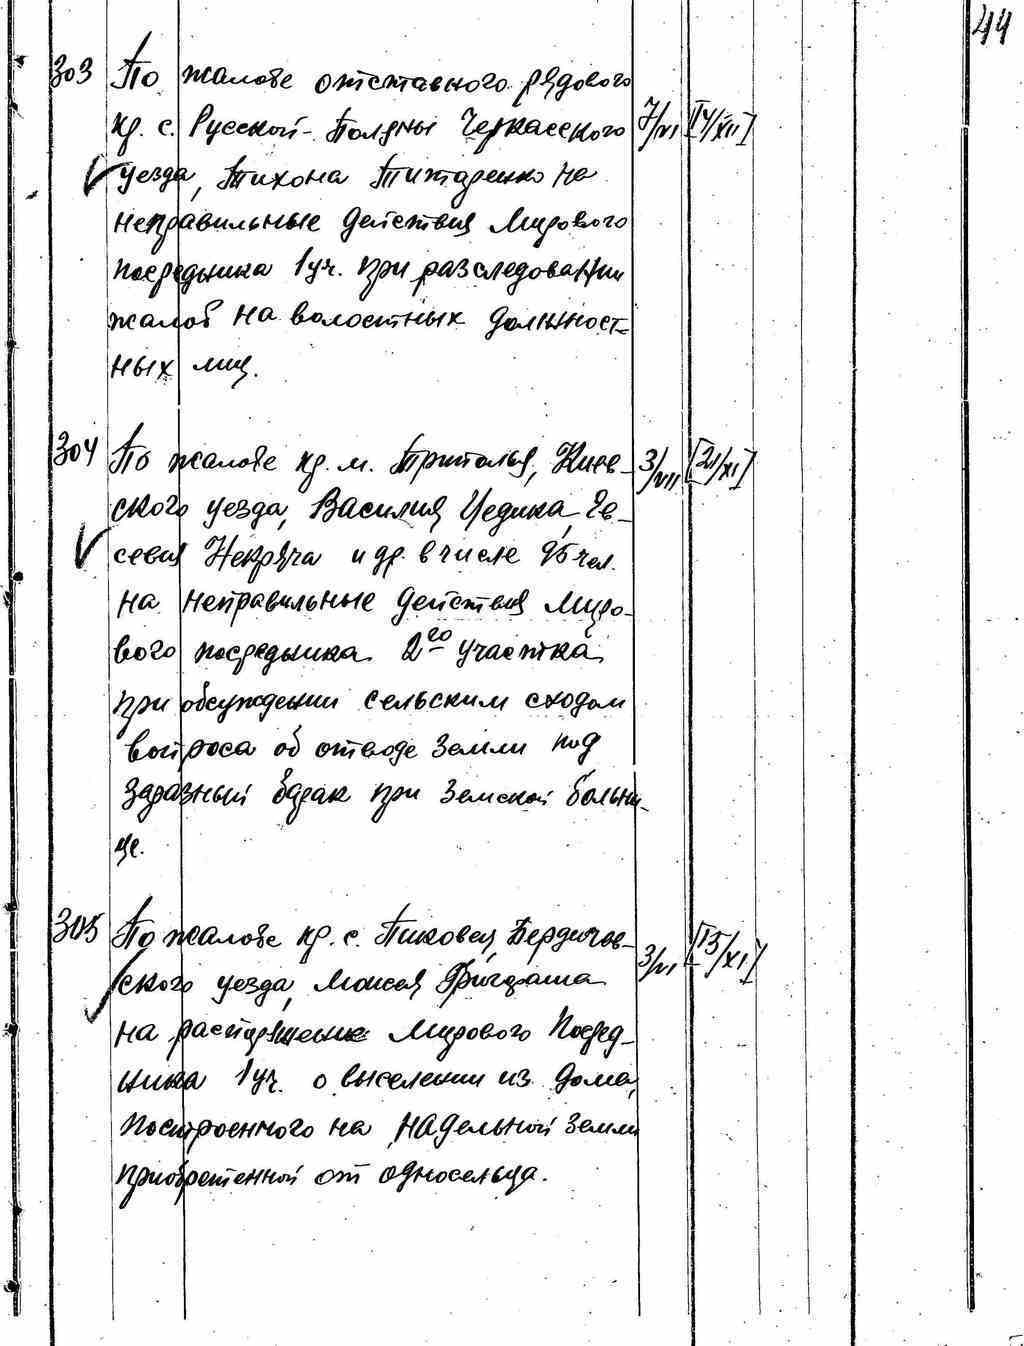 44
303 По жалобе отставного рядового
кр. с. Русской-Поляны Черкасского 7/VI [14/XII]
уезда, Тихона Титаренко на
неправильные действия Мирового
посредника 1 уч. при разследовании
жалоб на волостных должност-
ных лиц.
304 По жалобе кр. м. Триполья, Киев- 3/VII [21/XI]
ского уезда, Василия Цедика, Ев-
севия Некряча и др. в числе чел.
на неправильные действия Миро-
вого посредника 2го участка
при обсуждении сельским сходом
вопроса об отводе земли под
заразный барак при Земской больни-
це.
305 По жалобе кр. с. Пиковец, Бердичев-
ского уезда, Моисея 3/VI [15/XI]
на распоряжение Мирового Посред-
ника 1 уч. о выселении из дома,
построенного на надельной земли
приобретенной от односельца.